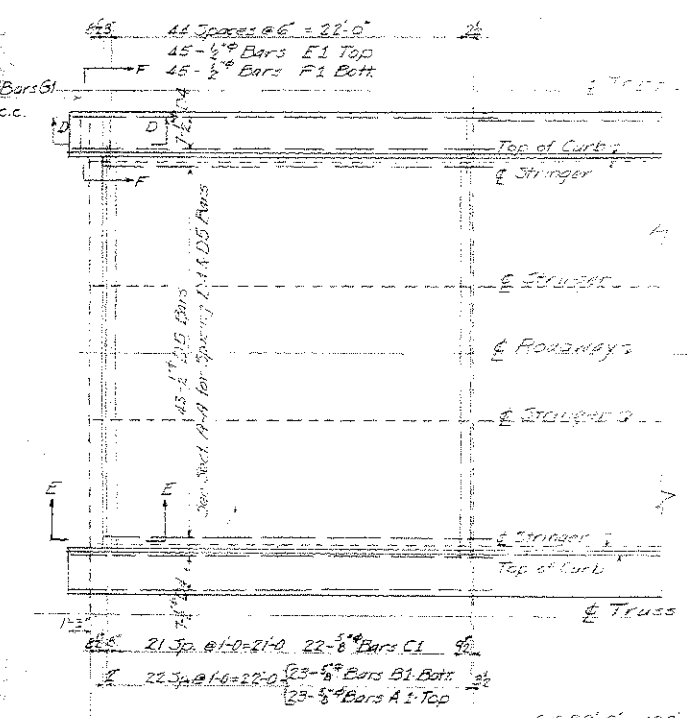 44 Spaces @ 6" = 22'-0"
2½
45-½"ᶲ Bars E1 Top
45-½"ᶲ Bars F1 Bott.
F
Bars G1
c.c.
D D
℄ Truss
Top of Curb
℄ Stringer
F
℄ Stringer
43-½"ᶲ D5 Bars
See Sect. A-A for Spacing D4 & D5 Bars
℄ Roadway
℄ Stringer
E E
℄ Stringer
Top of Curb
℄ Truss
1'-3
21 Sp. @ 1'-0=21'-0 22-⅝"ᶲ Bars C1 9½
22 Sp. @ 1'-0=22'-0 23-⅝"ᶲ Bars B1-Bott. 3½
23-⅝"ᶲ Bars A1-Top